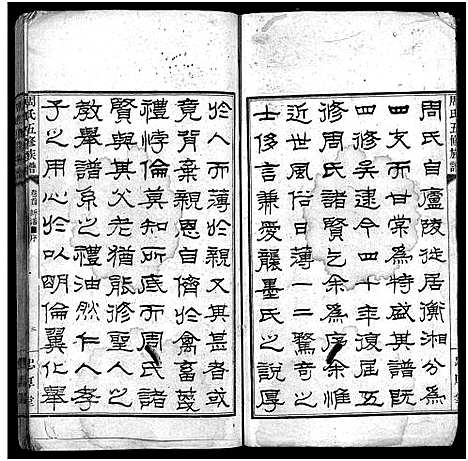 周氏自廬陵徙居衡湘分為
四支而甘棠為特盛其譜既
四修矣逮今四十年復屆五
修周氏諸賢乞余為序余惟
近世風俗日薄一二驚奇之
士侈言兼愛襲墨氏之說厚
於人而薄於親又其甚者或
竟背棄親恩自儕於禽畜蔑
禮悖倫莫知所底而周氏諸
賢與其父老猶能修聖人之
教舉譜系之禮油然仁人孝
子之用心以明倫翼化舉
周氏五修族譜
卷首
序
忠厚堂
周氏五修族譜